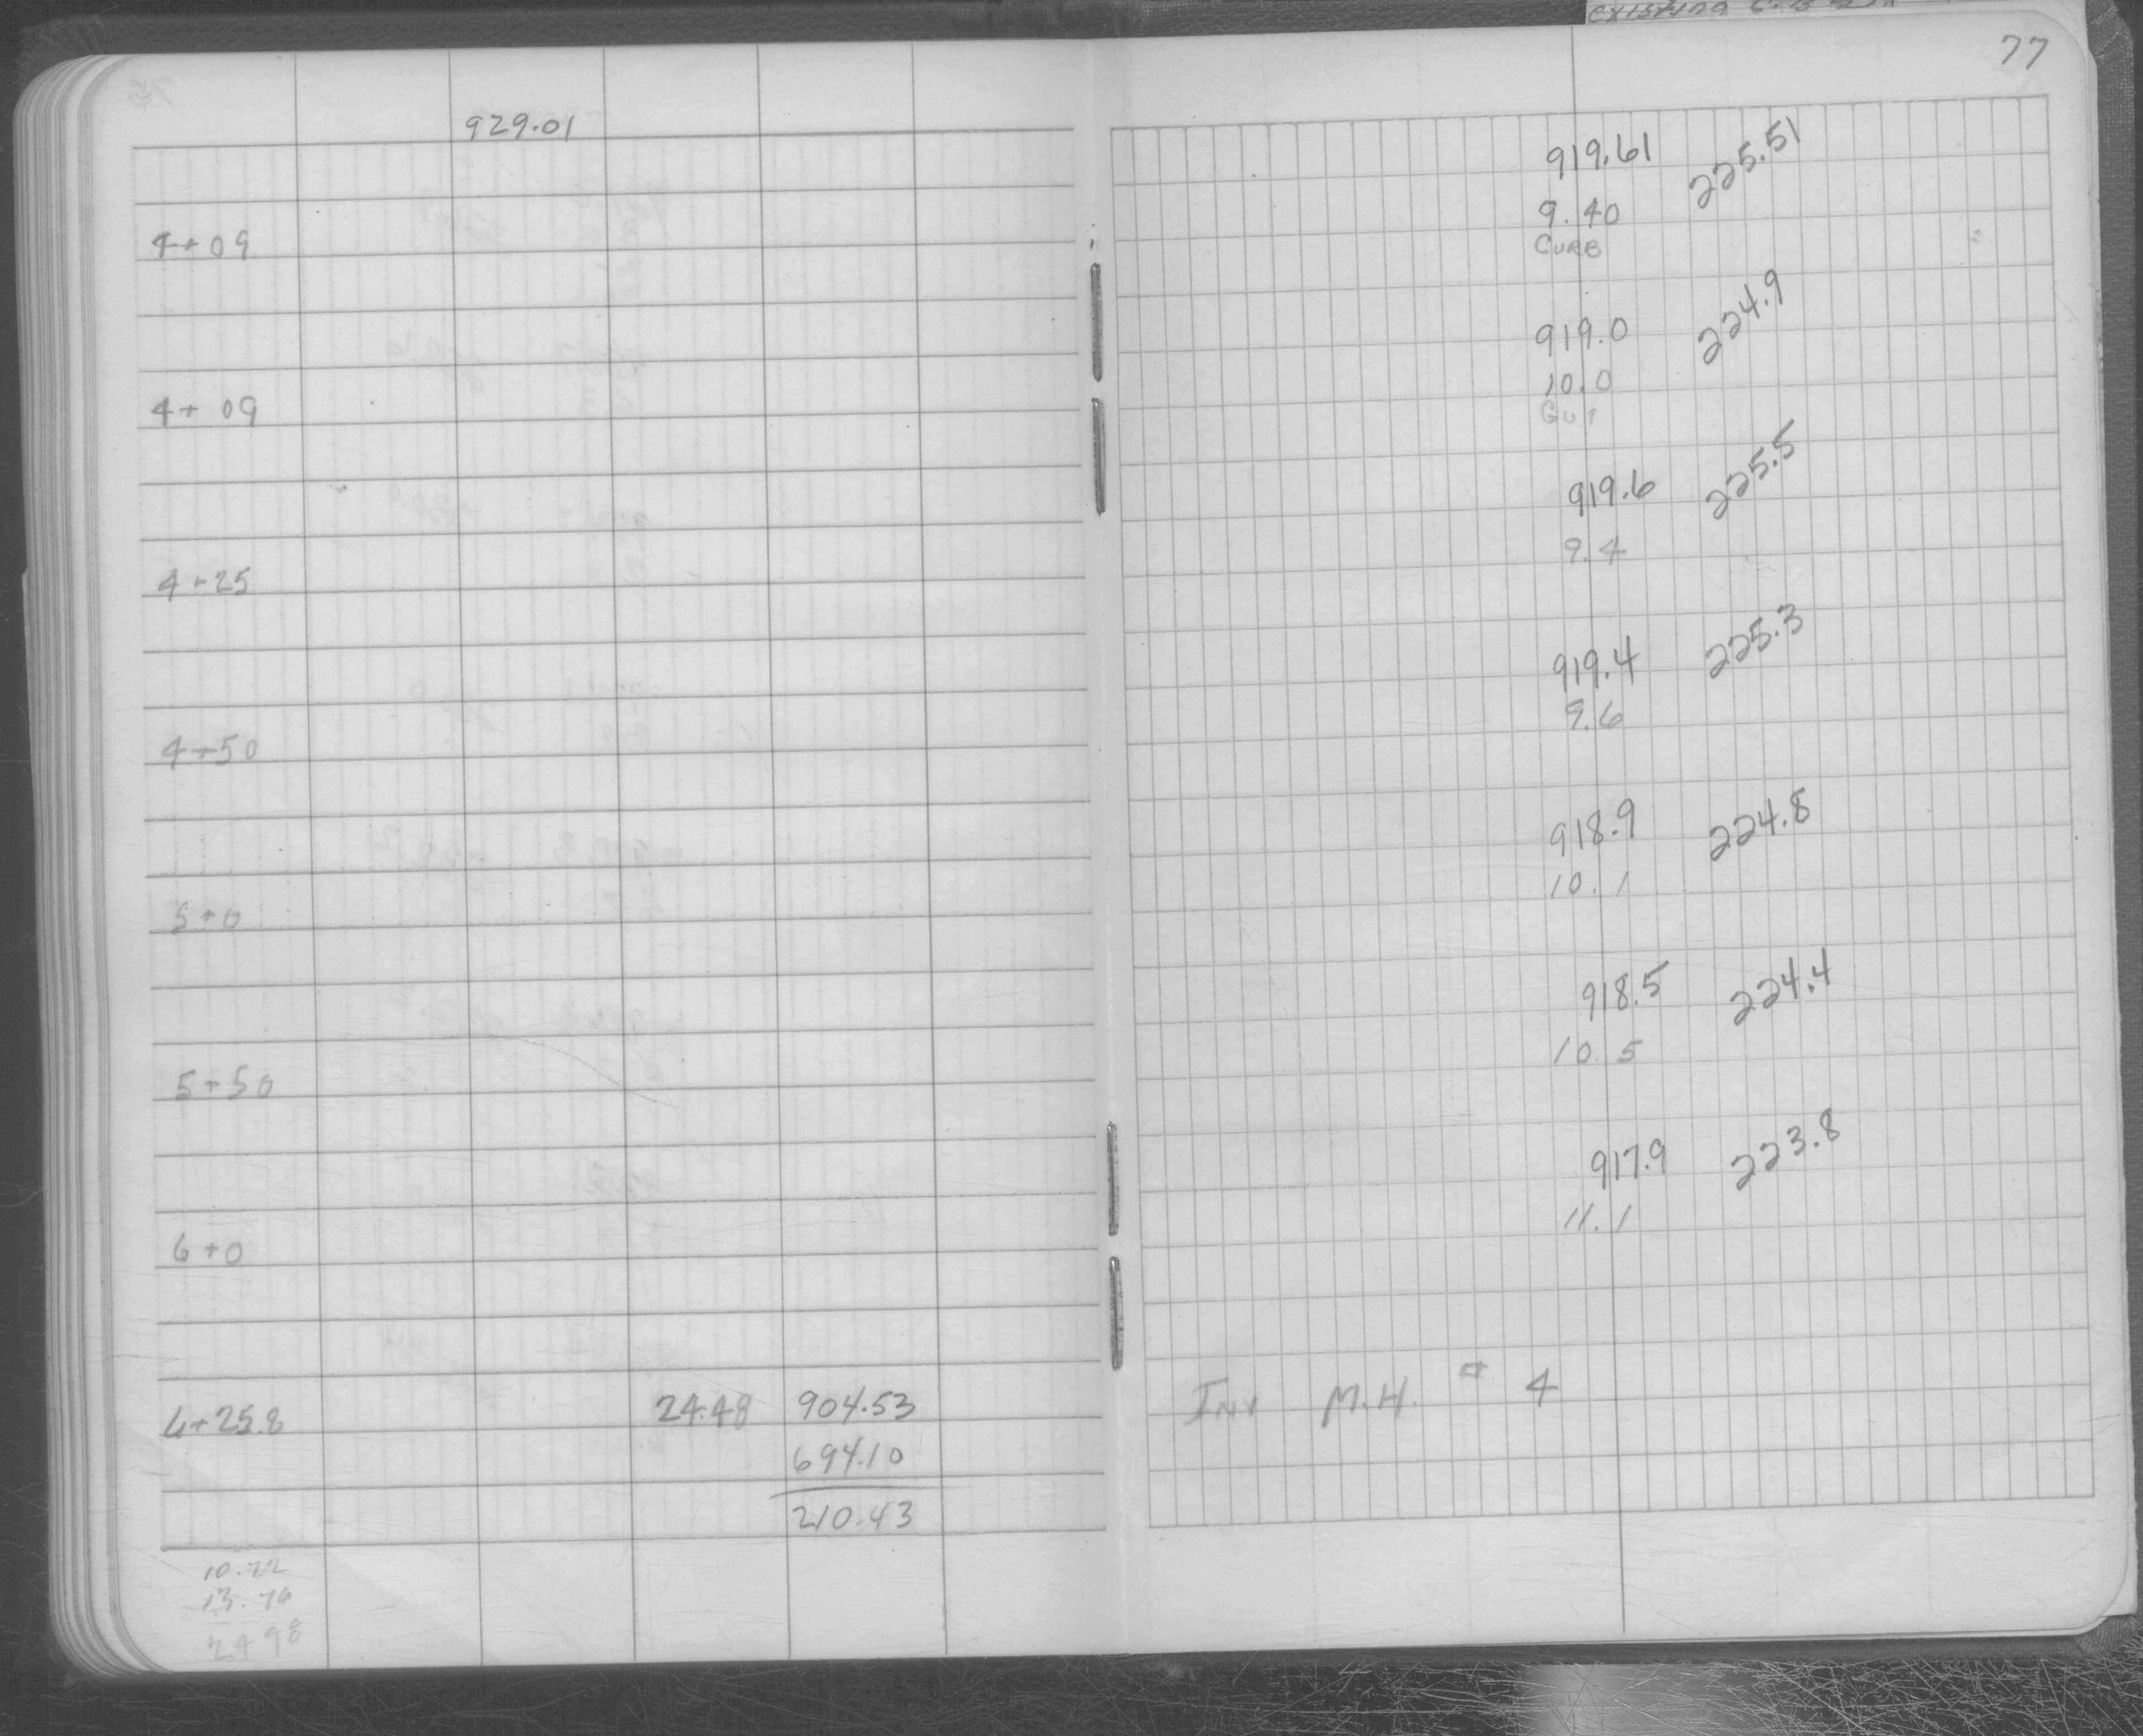 77
929.01
919.61 225.51
4+09 9.40
CURB
919.0 224.9
4+09 10.0
GUT
919.6 225.5
4+25 9.4
919.4 225.3
4+50 9.6
918.9 224.8
5+0 10.1
918.5 224.4
5+50 10.5
917.9 223.8
6+0 11.1
6+25.8 24.48 904.53 INV M.H. # 4
694.10
210.43
10.72
13.76
24 98